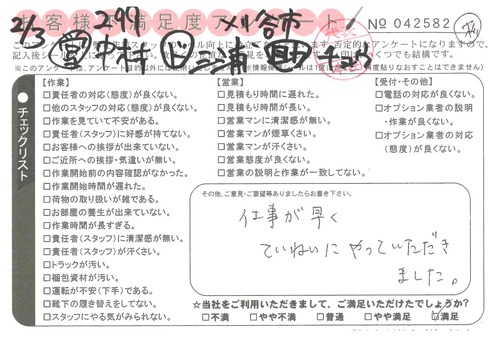 お客様 満足度 アンケート No 042582
2/3 299
【作業】
□責任者の対応(態度)が良くない。
□他のスタッフの対応(態度)が良くない。
□作業を見ていて不安がある。
□責任者(スタッフ)に好感が持てない。
□お客様への挨拶が出来ていない。
□ご近所への挨拶・気遣いが無い。
□作業開始前の内容確認がなかった。
□作業開始時間が遅れた。
□荷物の取り扱いが雑である。
□お部屋の養生が出来ていない。
□作業時間が長すぎる。
□責任者(スタッフ)に清潔感が無い。
□責任者(スタッフ)が汗くさい。
□トラックが汚い。
□梱包資材が汚い。
□運転が不安(下手)である。
□靴下の履き替えをしてない。
□スタッフにやる気がみられない。
【営業】
□見積もり時間に遅れた。
□見積もり時間が長い。
□営業マンに清潔感が無い。
□営業マンが煙草くさい。
□営業マンが汗くさい。
□営業態度が良くない。
□営業の説明と作業が一致してない。
【受付・その他】
□電話の対応が良くない。
□オプション業者の説明
・作業が良くない。
□オプション業者の対応
(態度)が良くない。
チェックリスト
その他、ご意見・ご要望等ありましたらお書き下さい。
仕事が早く
ていねいにやっていただき
ました。
☆当社をご利用いただきまして、ご満足いただけたでしょうか?
□不満 □やや不満 □普通 □やや満足 ☑満足